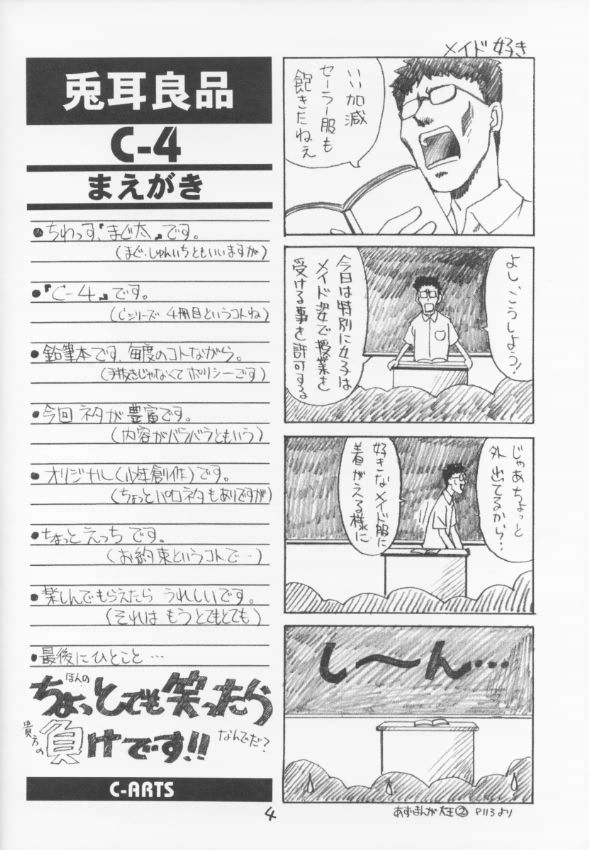 兎耳良品
C-4
まえがき
●ちわっす、『まぐ太』です。
(まぐ.じゅんいちともいいますが)
●『C-4』です。
(Cシリーズ 4冊目というコトね)
●鉛筆本です、毎度のコトながら。
(手抜きじゃなくてポリシーです)
●今回ネタが豊富です。
(内容がバラバラともいう)
●オリジナル(少年創作)です。
(ちょっとパロネタもありですが)
●ちょっとえっちです。
(お約束というコトで…)
●楽しんでもらえたらうれしいです。
(それはもうとてもとても)
●最後にひとこと…
ほんの
ちょっとでも笑ったら
貴方の
負けです!!
なんでだ?
C-ARTS
メイド好き
いい加減
セーラー服も
飽きたねえ
よし、こうしよう!
今日は特別に女子は
メイド姿で授業を
受ける事を許可する
じゃあちょっと
外出てるから…
好きなメイド服に
着がえる様に
し〜ん…
あずまんが大王② P113より
4